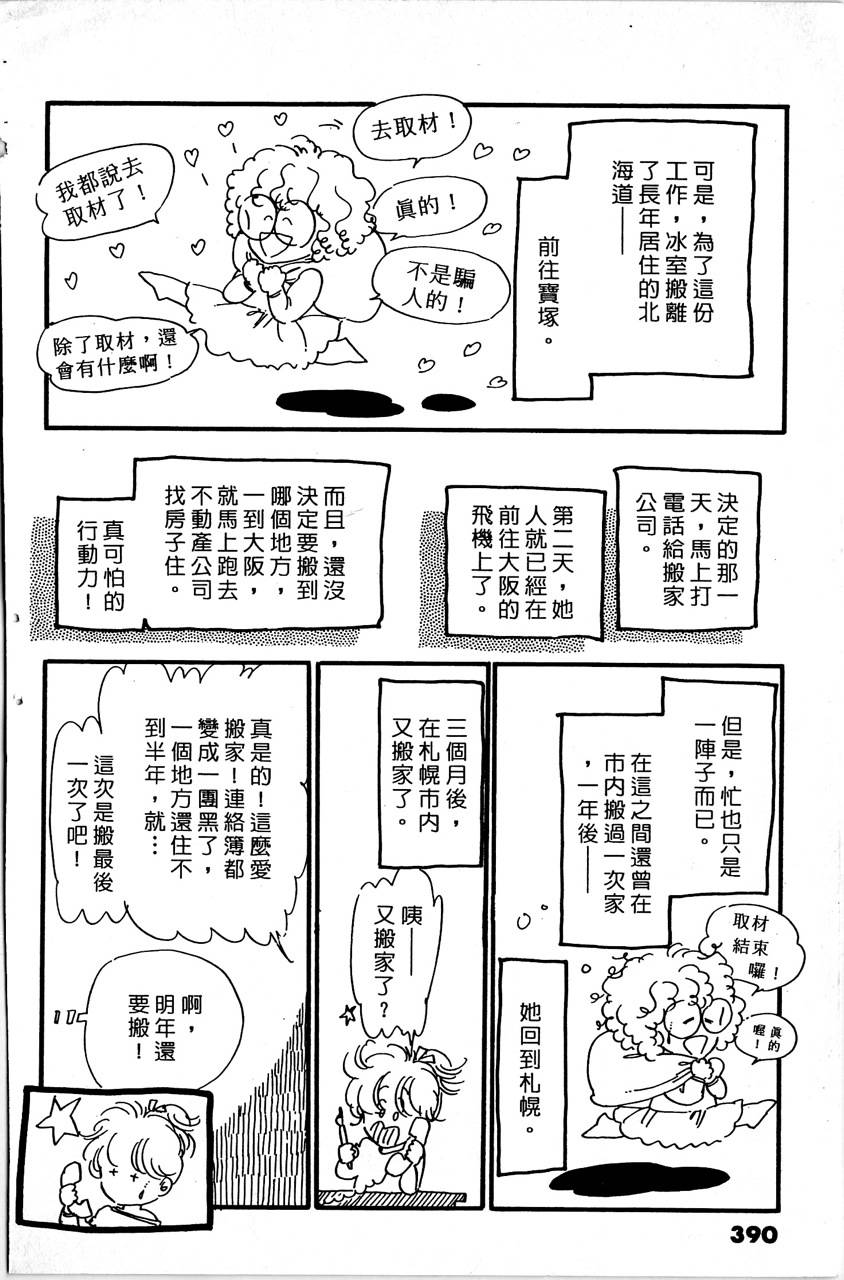 可是，為了這份
工作，冰室搬離
了長年居住的北
海道——
前往寶塚。
去取材！
真的！
不是騙
人的！
我都說去
取材了！
除了取材，還
會有什麼啊！
決定的那一
天，馬上打
電話給搬家
公司。
第二天，她
人就已經在
前往大阪的
飛機上了。
而且，還沒
決定要搬到
哪個地方，
一到大阪，
就馬上跑去
不動產公司
找房子住。
真可怕的
行動力！
但是，忙也只是
一陣子而已。
在這之間還曾在
市內搬過一次家
，一年後——
取材
結束
囉！
真的
喔！
她回到札幌。
三個月後，
在札幌市內
又搬家了。
咦——
又搬家了？
真是的！這麼愛
搬家！連絡簿都
變成一團黑了，
一個地方還住不
到半年，就…
這次是搬最後
一次了吧！
啊，
明年還
要搬！
390